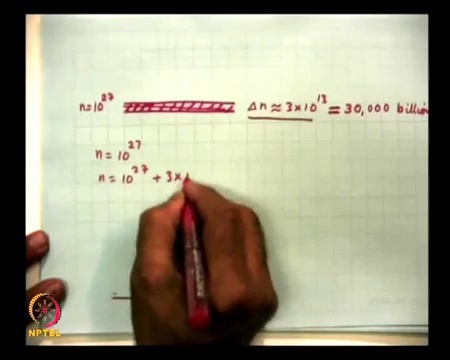 n=10²⁷ Δn ≈ 3×10¹³ = 30,000 billion
n = 10²⁷
n = 10²⁷ + 3×
NPTEL